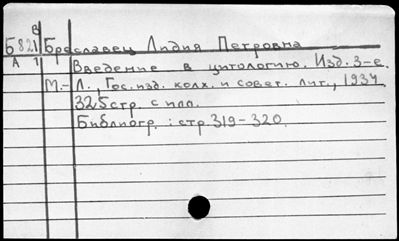 Б821 Бреславец Лидия Петровна
А 1 Введение в цитологию. Изд. 3-е.
М.-Л., Гос. изд. колх. и совет. лит., 1934
325 стр. с илл.
Библиогр. : стр. 319-320.